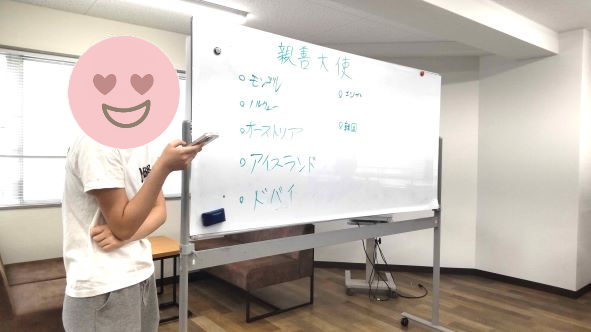 親善大使
○モンゴル
○ノルウェー
○オーストリア
○アイスランド
○ドバイ
○韓国